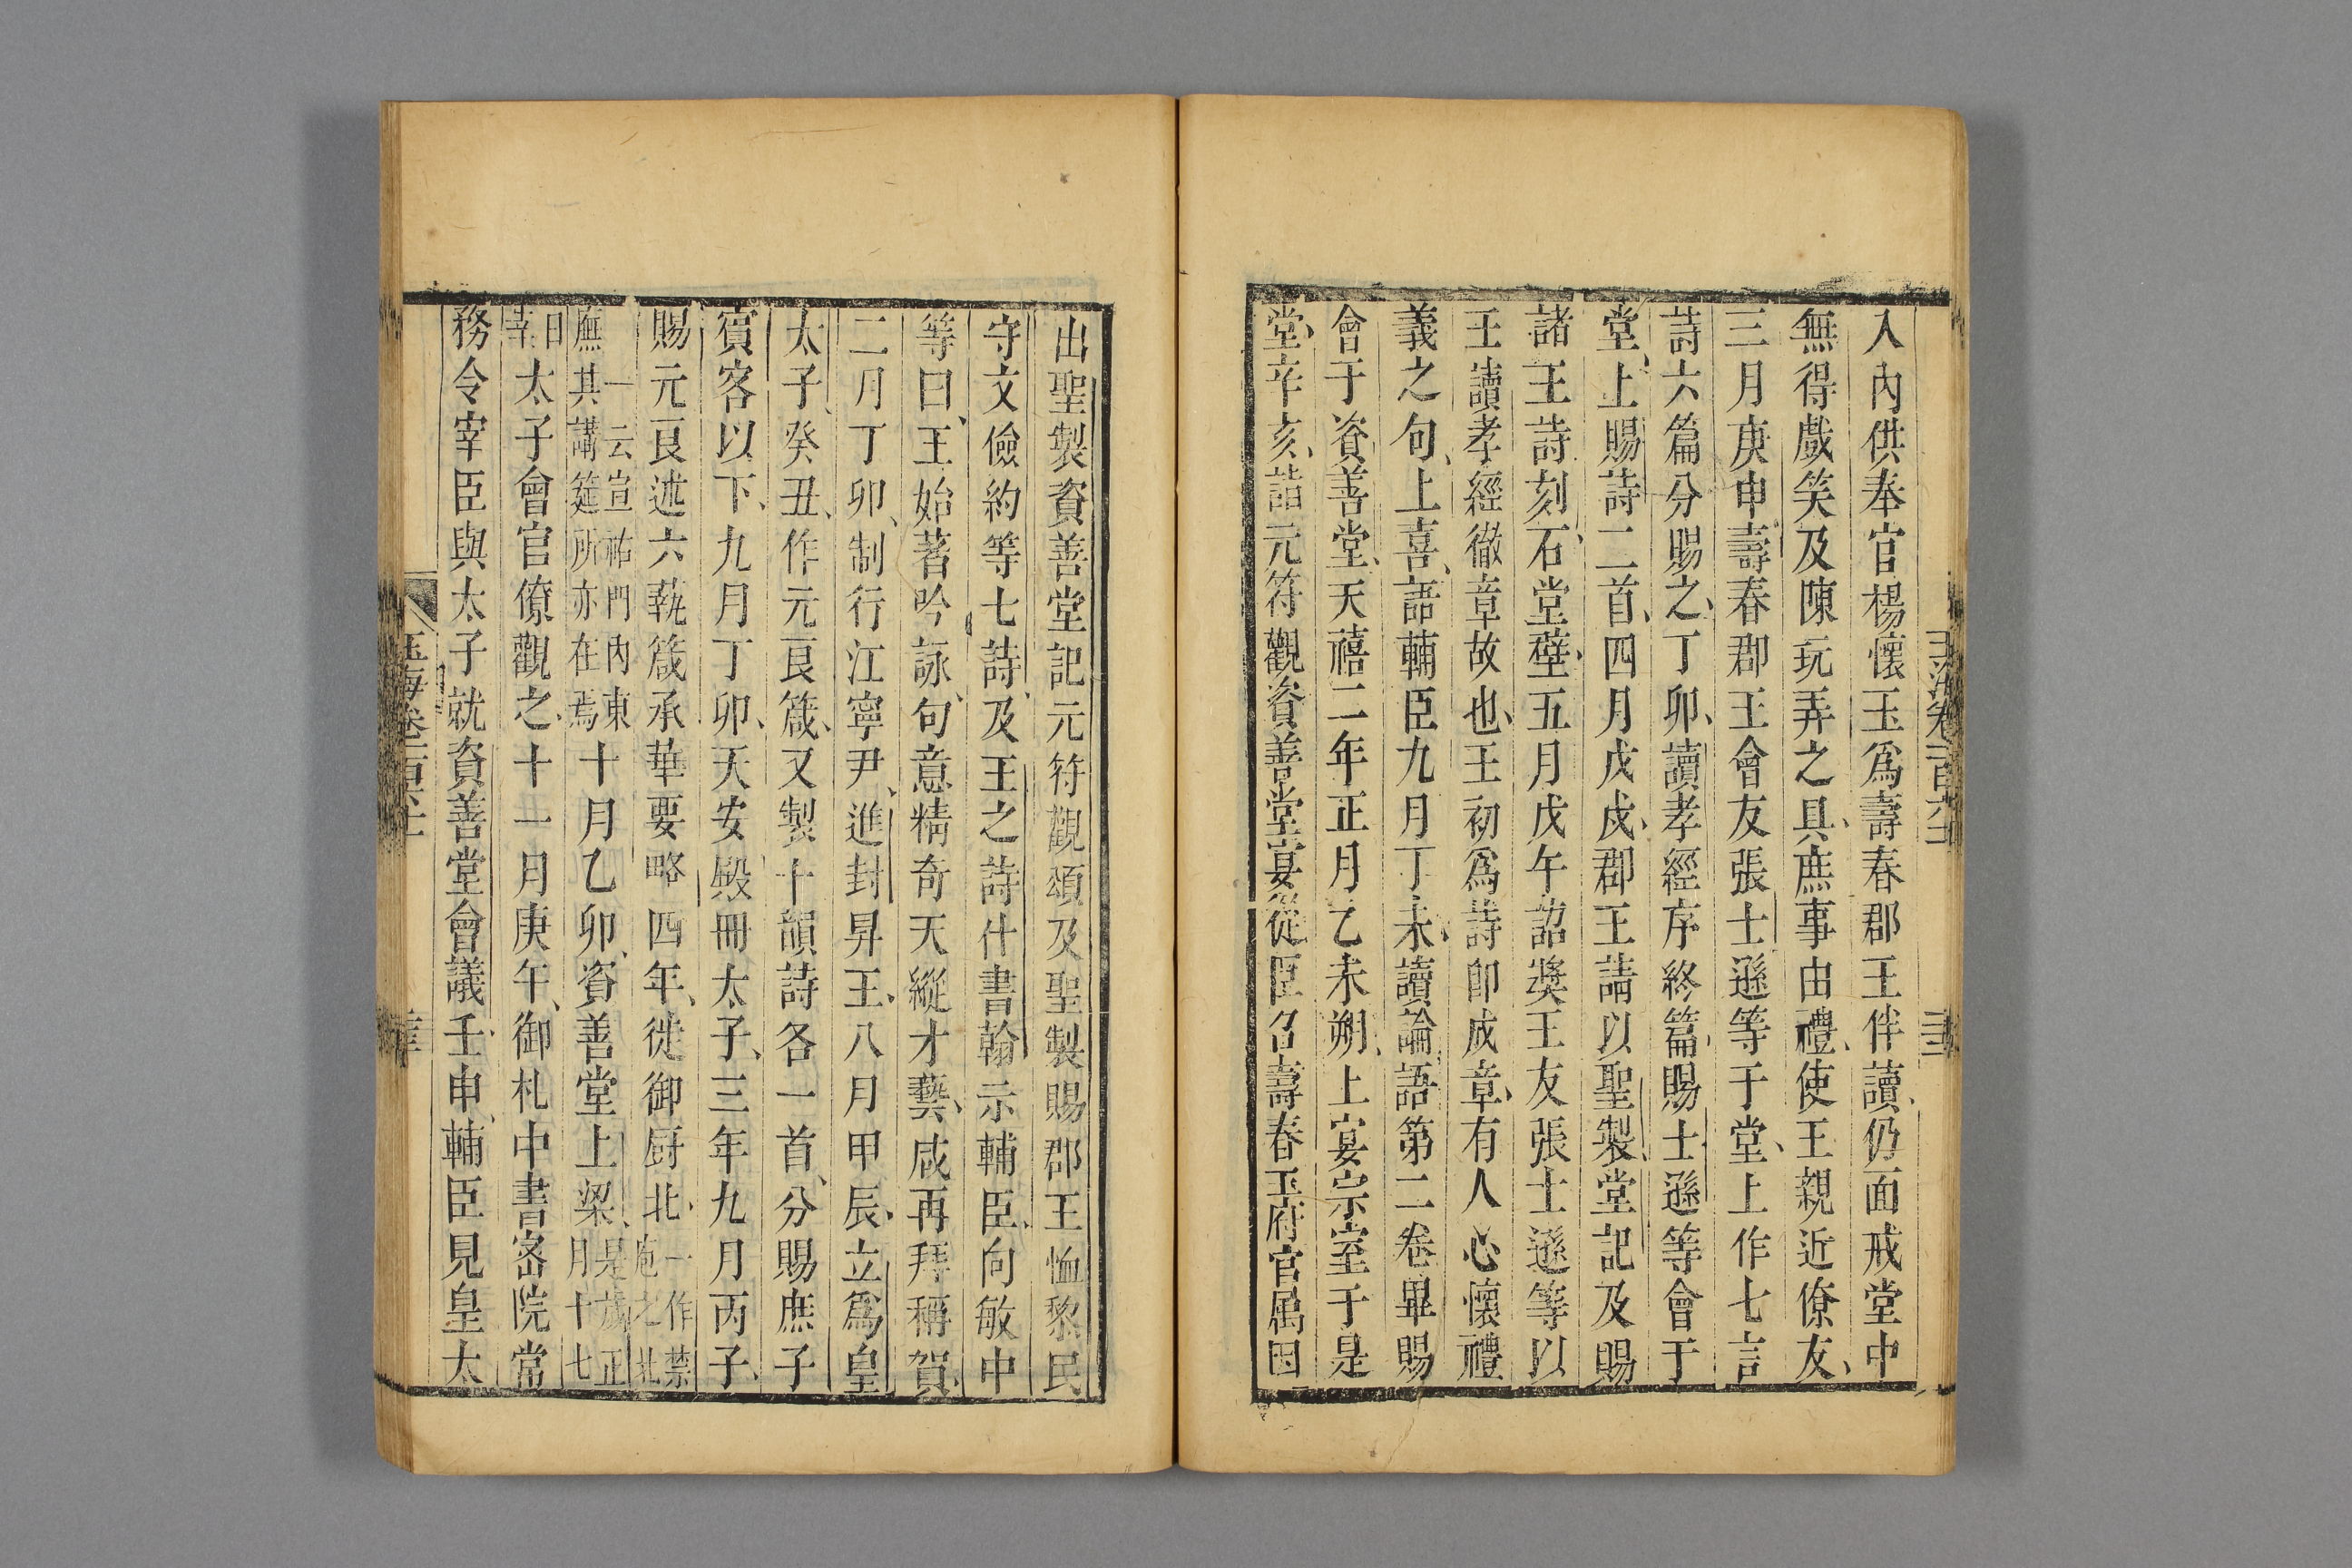 入內供奉官楊懷玉爲壽春郡王伴讀仍面戒堂中
無得戲笑及陳玩弄之具庶事由禮使王親近僚友
三月庚申壽春郡王會友張士遜等于堂上作七言
詩六篇分賜之丁卯讀孝經序終篇賜士遜等會于
堂上賜詩二首四月戊戌郡王請以聖製堂記及賜
諸王詩刻石堂壁五月戊午詔奬王友張士遜等以
王讀孝經徹章故也王初爲詩卽成章有人心懷禮
義之句上喜語輔臣九月丁未讀論語第二卷畢賜
會于資善堂天禧二年正月乙未朔上宴宗室于是
堂辛亥詣元符觀資善堂宴從臣召壽春王府官屬因
出聖製資善堂記元符觀頌及聖製賜郡王恤黎民
守文儉約等七詩及王之詩什書翰示輔臣向敏中
等曰王始著吟詠句意精奇天縱才藝咸再拜稱賀
二月丁卯制行江寧尹進封昇王八月甲辰立爲皇
太子癸丑作元良箴又製十韻詩各一首分賜庶子
賓客以下九月丁卯天安殿冊太子三年九月丙子
賜元良述六蓺箴承華要略四年徙御厨北一作禁
庖之北
一云宣祐門內東
廡其講筵所亦在焉十月乙卯資善堂上梁是歲正
月十七
日
幸太子會官僚觀之十一月庚午御札中書密院常
務令宰臣與太子就資善堂會議壬申輔臣見皇太
玉海卷一百六十一